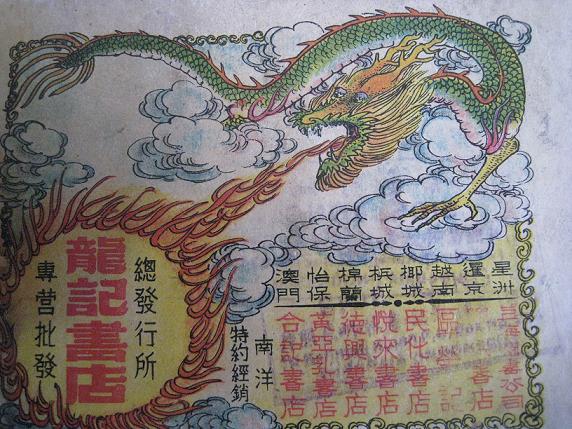 總發行所
龍記書店
專營批發
南洋
特約經銷
星洲
書公司
暹京
書店
越南
記
椰城
民化書店
梹城
悅來書店
棉蘭
興書店
怡保
黃亞書店
澳門
合記書店